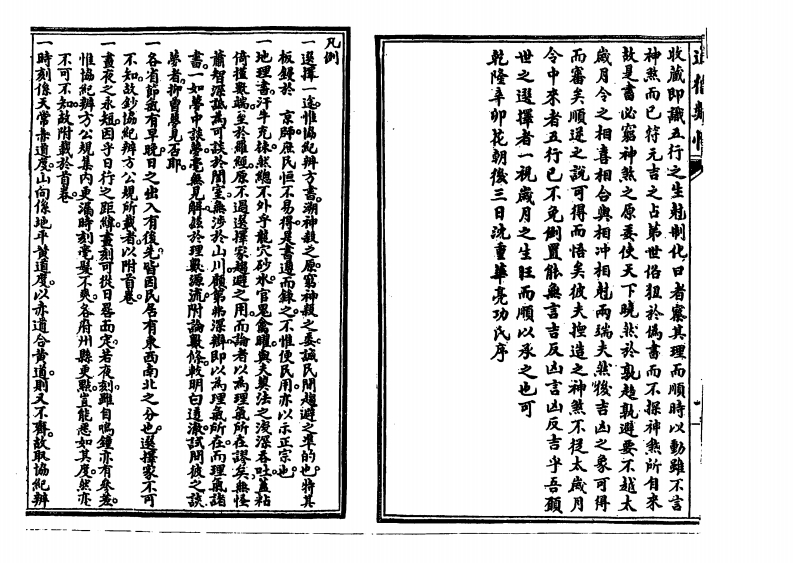 收藏即識五行之生尅制化曰者察其理而順時以動雖不言
神煞而已符元吉之占第世俗狃於偽書而不探神煞所自來
故是書必窮神煞之原委使天下曉然於孰趨孰避要不越太
歲月令之相喜相合與相冲相尅兩端夫然後吉凶之象可得
而審矣順逆之說可得而悟矣彼夫捏造之神煞不提太歲月
令中來者五行已不免倒置能無言吉反凶言凶反吉乎吾願
世之選擇者一視歲月之生旺而順以承之也可
乾隆辛卯花朝後三日沈重華亮功氏序
凡例
一選擇一途惟協紀辨方書溯神殺之原窮神殺之委誠民間趨避之準的也將其
板鋟於 京師庶民恒不易得是書遵而錄之不惟便民用亦以示正宗也
一地理書汗牛充棟然總不外乎龍穴砂水官鬼禽曜與夫葬法之淺深吞吐蓋粘
倚撞數端至於羅經原不過選擇家趨避之用而論者以為理氣所在謬矣無怪
蕭智深譏為可談於閨室無涉於山川願第弗深辦即以為理氣所在而理氣諸
書一如夢中談夢毫無見解茲於理數源流附論數條較明白透澈試問彼之談
夢者抑曾夢見否耶
一各省節氣有早晚日之出入有後先皆因民居有東西南北之分也選擇家不可
不知故鈔協紀辨方公規所載者以附首卷
一晝夜之永短因乎日行之距緯晝刻可從日晷而定若夜刻雖自鳴鐘亦有參差
惟協紀辨方公規集內更漏時刻毫髮不爽各府州縣更點豈能悉如其度然亦
不可不知故附載於首卷
一時刻係天常赤道度山向係地平黃道度以赤道合黃道則又不齊故取協紀辨